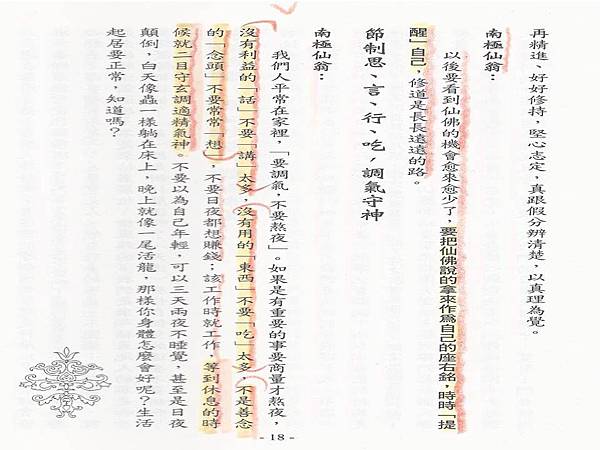 再精進、好好修持，堅心志定，真跟假分辨清楚，以真理為覺。
南極仙翁：
以後要看到仙佛的機會愈來愈少了，要把仙佛說的拿來作為自己的座右銘，時時「提
醒」自己，修道是長長遠遠的路。
節制思、言、行、吃，調氣守神
南極仙翁：
我們人平常在家裡，「要調氣，不要熬夜」。如果是有重要的事要商量才熬夜，
沒有利益的「話」不要「講」太多，沒有用的「東西」不要「吃」太多，不是善念
的「念頭」不要常常「想」，不要日夜都想賺錢；該工作時就工作，等到休息的時
候就二目守玄調適精氣神。不要以為自己年輕，可以三天兩夜不睡覺，甚至是日夜
顛倒，白天像蟲一樣躺在床上，晚上就像一尾活龍，那樣你身體怎麼會好呢？生活
起居要正常，知道嗎？
- 18 -